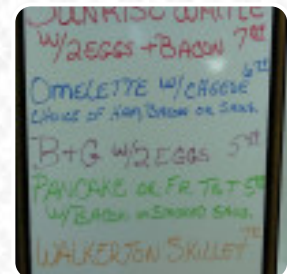 SUNRISE WAFFLE
W/2 EGGS + BACON 7
OMELETTE W/CHEESE 6
CHOICE OF HAM, BACON OR SAUS.
B+G W/2 EGGS 5
PANCAKE OR FR TST 5
W/BACON OR SAUS.
WALKERTON SKILLET 7